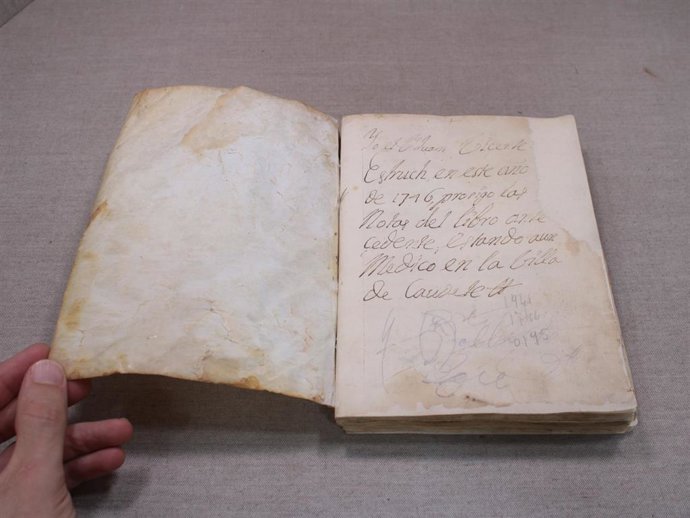 Yo el Dr Juan Vicente
Estruch en este año
de 1746, prosigo las
Notas del libro ante
cedente, estando aun
Medico en la Villa
de Caudete
1941
1746
0195